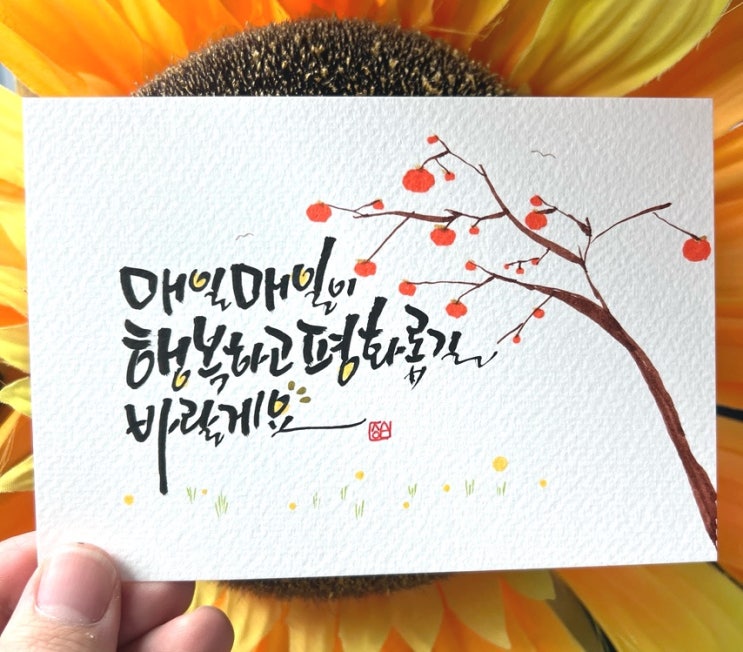 매일매일이
행복하고 평화롭길
바랄게요